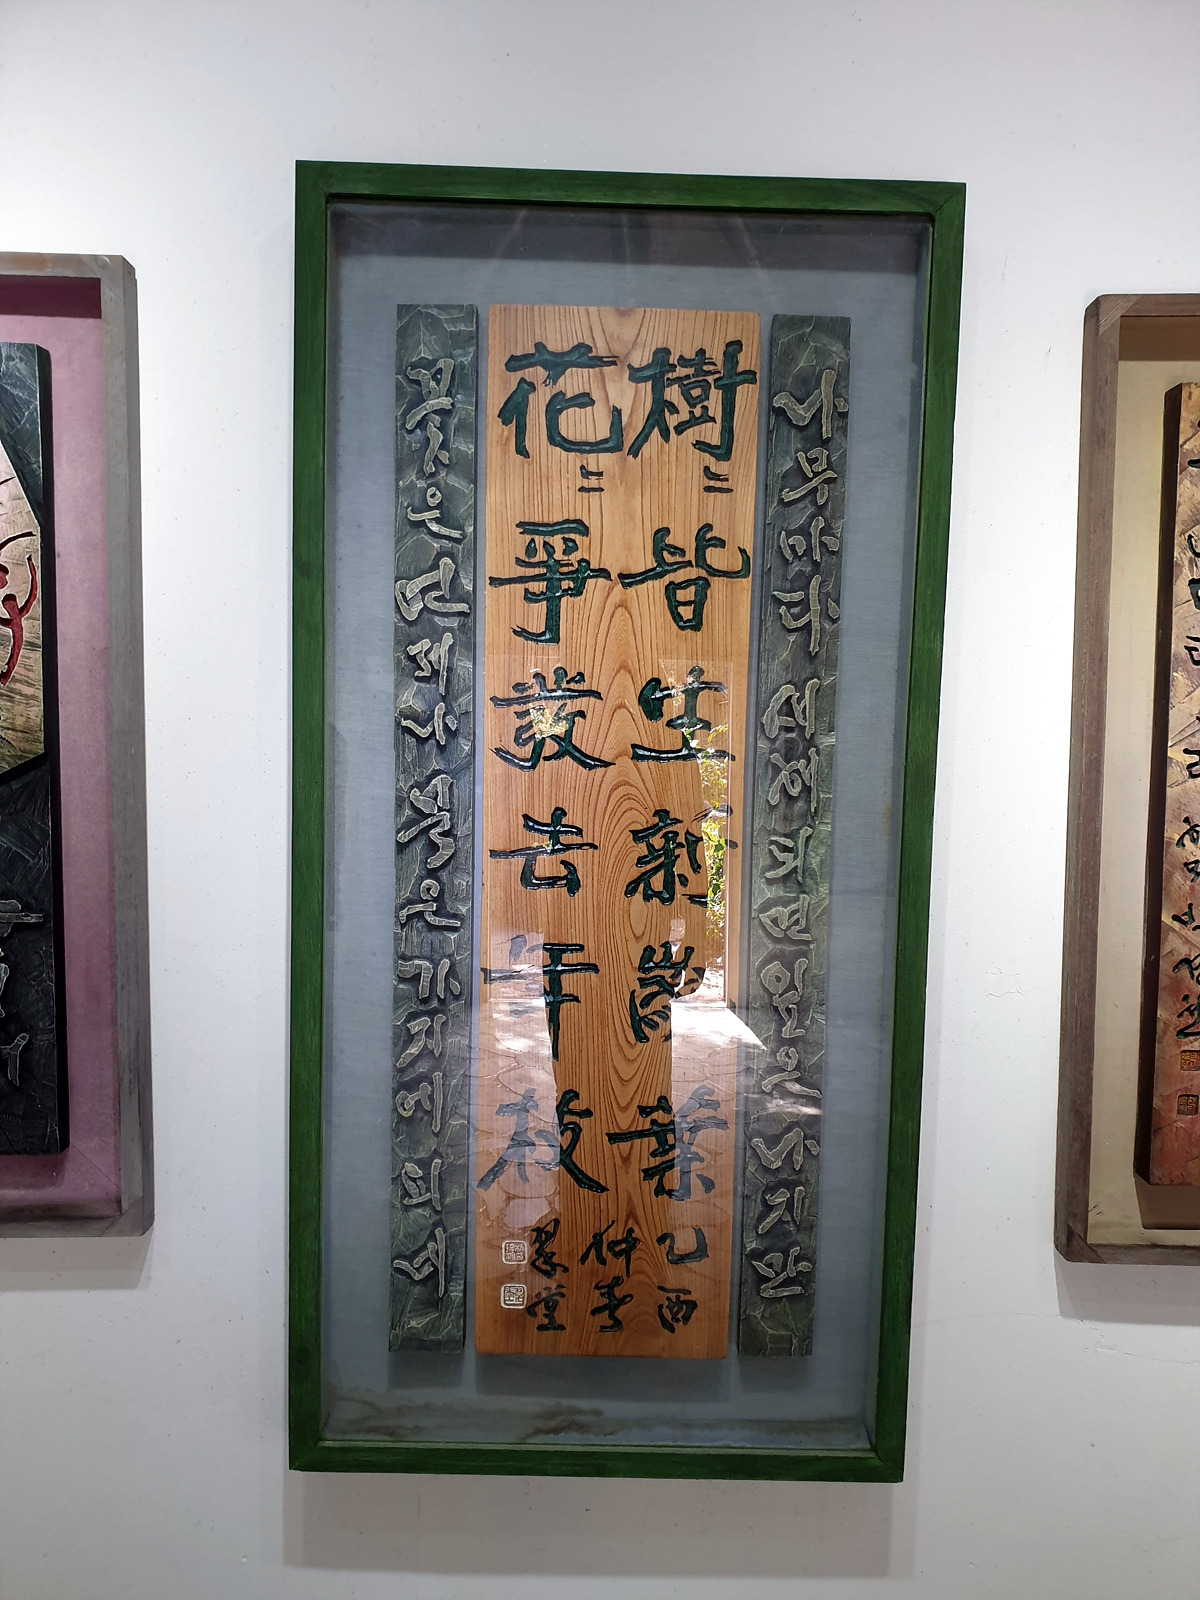 나무마다 새해 되면 잎은 나지만
樹〻皆生新歲葉
花〻爭發去年枝
乙酉
仲春
翠堂
꽃은 언제나 묵은 가지에 피네